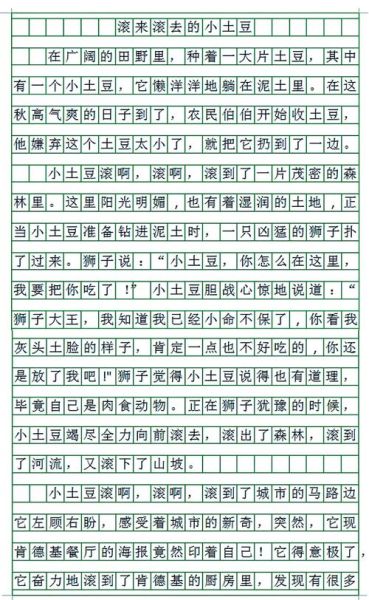 滚来滚去的小土豆
在广阔的田野里，种着一大片土豆，其中
有一个小土豆，它懒洋洋地躺在泥土里。在这
秋高气爽的日子到了，农民伯伯开始收土豆，
他嫌弃这个土豆太小了，就把它扔到了一边。
小土豆滚啊，滚啊，滚到了一片茂密的森
林里。这里阳光明媚,也有着湿润的土地,正
当小土豆准备钻进泥土时，一只凶猛的狮子扑
了过来。狮子说：“小土豆，你怎么在这里，
我要把你吃了！”小土豆胆战心惊地说道：“
狮子大王，我知道我已经小命不保了,你看我
灰头土脸的样子，肯定一点也不好吃的,你还
是放了我吧!"狮子觉得小土豆说得也有道理，
毕竟自己是肉食动物。正在狮子犹豫的时候，
小土豆竭尽全力向前滚去，滚出了森林，滚到
了河流，又滚下了山坡。
小土豆滚啊，滚啊，滚到了城市的马路边
它左顾右盼，感受着城市的新奇，突然，它现
肯德基餐厅的海报竟然印着自己！它得意极了，
它奋力地滚到了肯德基的厨房里，发现有很多